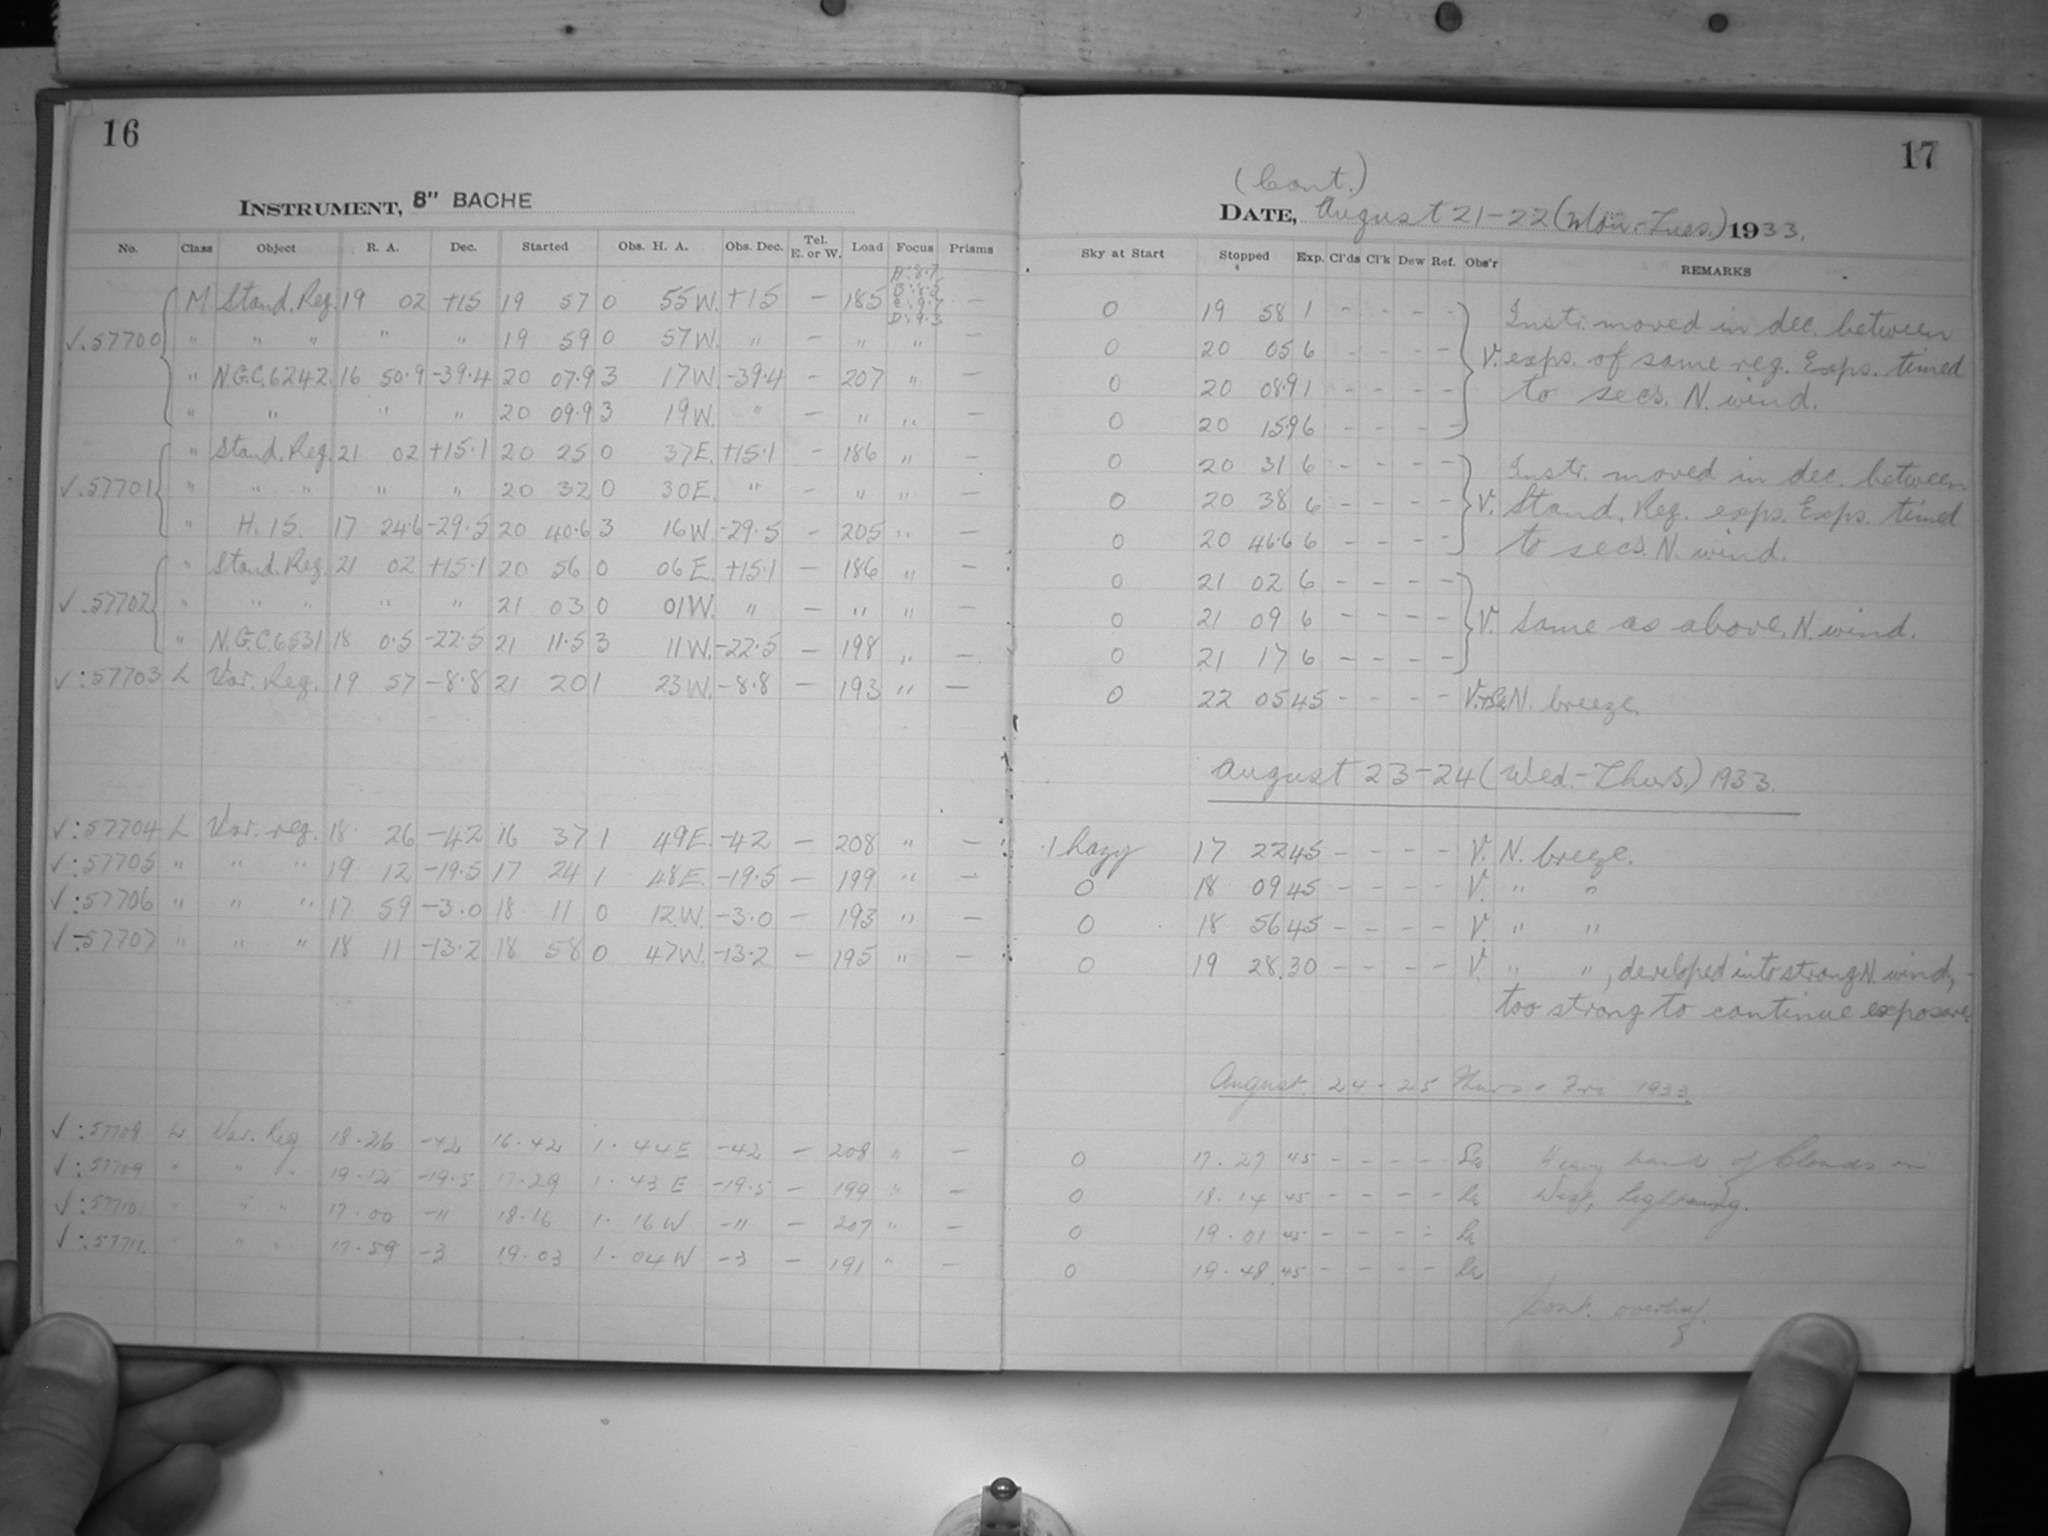 16
INSTRUMENT, 8" BACHE
No. Class Object R. A. Dec. Started Obs. H. A. Obs. Dec. Tel. E. or W. Load Focus Prisms
M Stand. Reg. 19 02 +15 19 57 0 55W. +15 – 185 A:8.7 B:8.5 C:9.7 D:9.3 –
V.57700 " " " " " 19 59 0 57W. " – " " –
" N.G.C.6242. 16 50.9 -39.4 20 07.9 3 17W. -39.4 – 207 " –
" " " " 20 09.9 3 19W. " – " " –
" Stand. Reg. 21 02 +15.1 20 25 0 37E. +15.1 – 186 " –
V.57701 " " " " " 20 32 0 30E. " – " " –
" H. 15. 17 24.6 -29.5 20 40.6 3 16W. -29.5 – 205 " –
" Stand. Reg. 21 02 +15.1 20 56 0 06E. +15.1 – 186 " –
V.57702 " " " " " 21 03 0 01W. " – " " –
" N.G.C.6531 18 0.5 -22.5 21 11.5 3 11W. -22.5 – 198 " –
V:57703 L Var. Reg. 19 57 -8.8 21 20 1 23W. -8.8 – 193 " –
V:57704 L Var. reg. 18 26 -42 16 37 1 49E. -42 – 208 " –
V:57705 " " " 19 12 -19.5 17 24 1 48E. -19.5 – 199 " –
V:57706 " " " 17 59 -3.0 18 11 0 12W. -3.0 – 193 " –
V:57707 " " " 18 11 -13.2 18 58 0 47W. -13.2 – 195 " –
V:57708 L Var. Reg 18.26 -42 16.42 1.44E -42 – 208 " –
V:57709 " " " 19.12 -19.5 17.29 1.43E -19.5 – 199 " –
V:57710 " " " 17.00 -11 18.16 1.16W -11 – 207 " –
V:57711 " " " 17.59 -3 19.03 1.04W -3 – 191 " –
17
(Cont.)
DATE, August 21-22 (Mon.-Tues.) 1933.
Sky at Start Stopped Exp. Cl'ds Cl'k Dew Ref. Obs'r REMARKS
0 19 58 1 – – – – Instr. moved in dec. between
0 20 05 6 – – – – V. exps. of same reg. Exps. timed
0 20 08.9 1 – – – – to secs. N. wind.
0 20 15.9 6 – – – –
0 20 31 6 – – – – Instr. moved in dec. between
0 20 38 6 – – – – V. Stand. Reg. exps. Exps. timed
0 20 46.6 6 – – – – to secs. N. wind.
0 21 02 6 – – – –
0 21 09 6 – – – – V. Same as above. N. wind.
0 21 17 6 – – – –
0 22 05 45 – – – – V. N. breeze.
August 23-24 (Wed.-Thurs.) 1933.
.1 hazy 17 22 45 – – – – V. N. breeze.
0 18 09 45 – – – – V. " "
0 18 56 45 – – – – V. " "
0 19 28. 30 – – – – V. " ", developed into strong N. wind,
too strong to continue exposure.
August 24-25 Thurs - Fri 1933.
0 17.27 45 – – – – Heavy bank of Clouds in
0 18.14 45 – – – – West, lightning.
0 19.01 45 – – – –
0 19.48 45 – – – –
Cont. overleaf